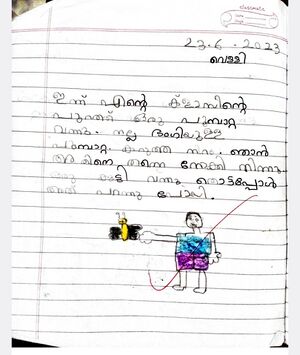 classmate
23-6-2023
വെള്ളി
ഇന്ന് എൻ്റെ ക്ളാസിൻ്റെ
പുറത്ത് ഒരു പൂമ്പാറ്റ
വന്നു. നല്ല ഭംഗിയുള്ള
പൂമ്പാറ്റ. കറുത്ത നിറം. ഞാൻ
അതിനെ തന്നെ നോക്കി നിന്നു.
ഒരു കുട്ടി വന്നു തൊട്ടപ്പോൾ
അത് പറന്നു പോയി.